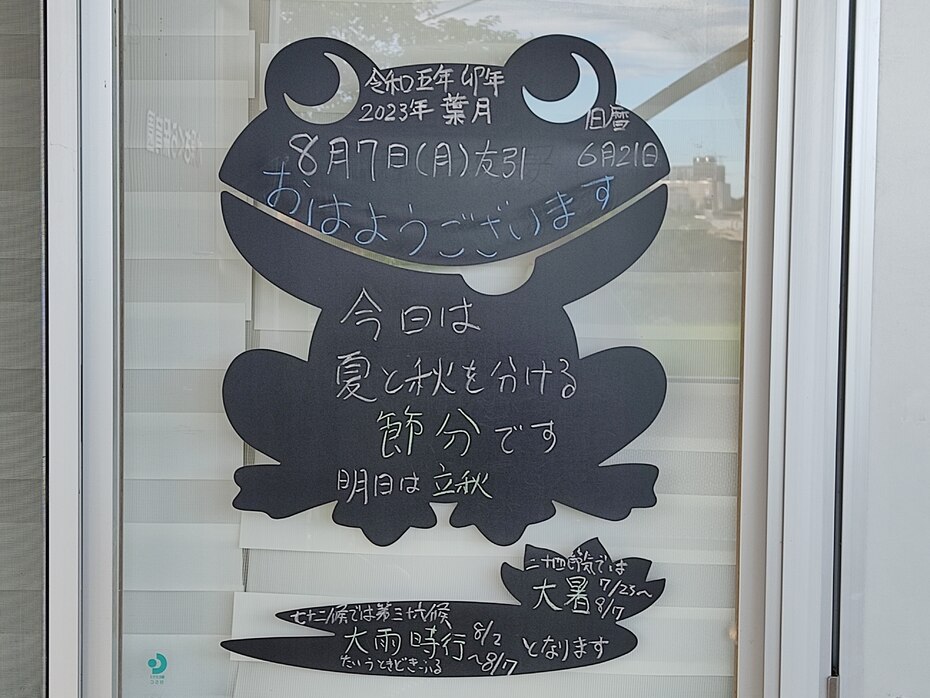 令和五年卯年
2023年 葉月
旧暦
8月7日(月)友引 6月21日
おはようございます
今日は
夏と秋を分ける
節分です
明日は立秋
二十四節気では
大暑 7/23〜8/7
七十二候では第三十六候
大雨時行 8/2〜8/7 となります
たいうときどきふる